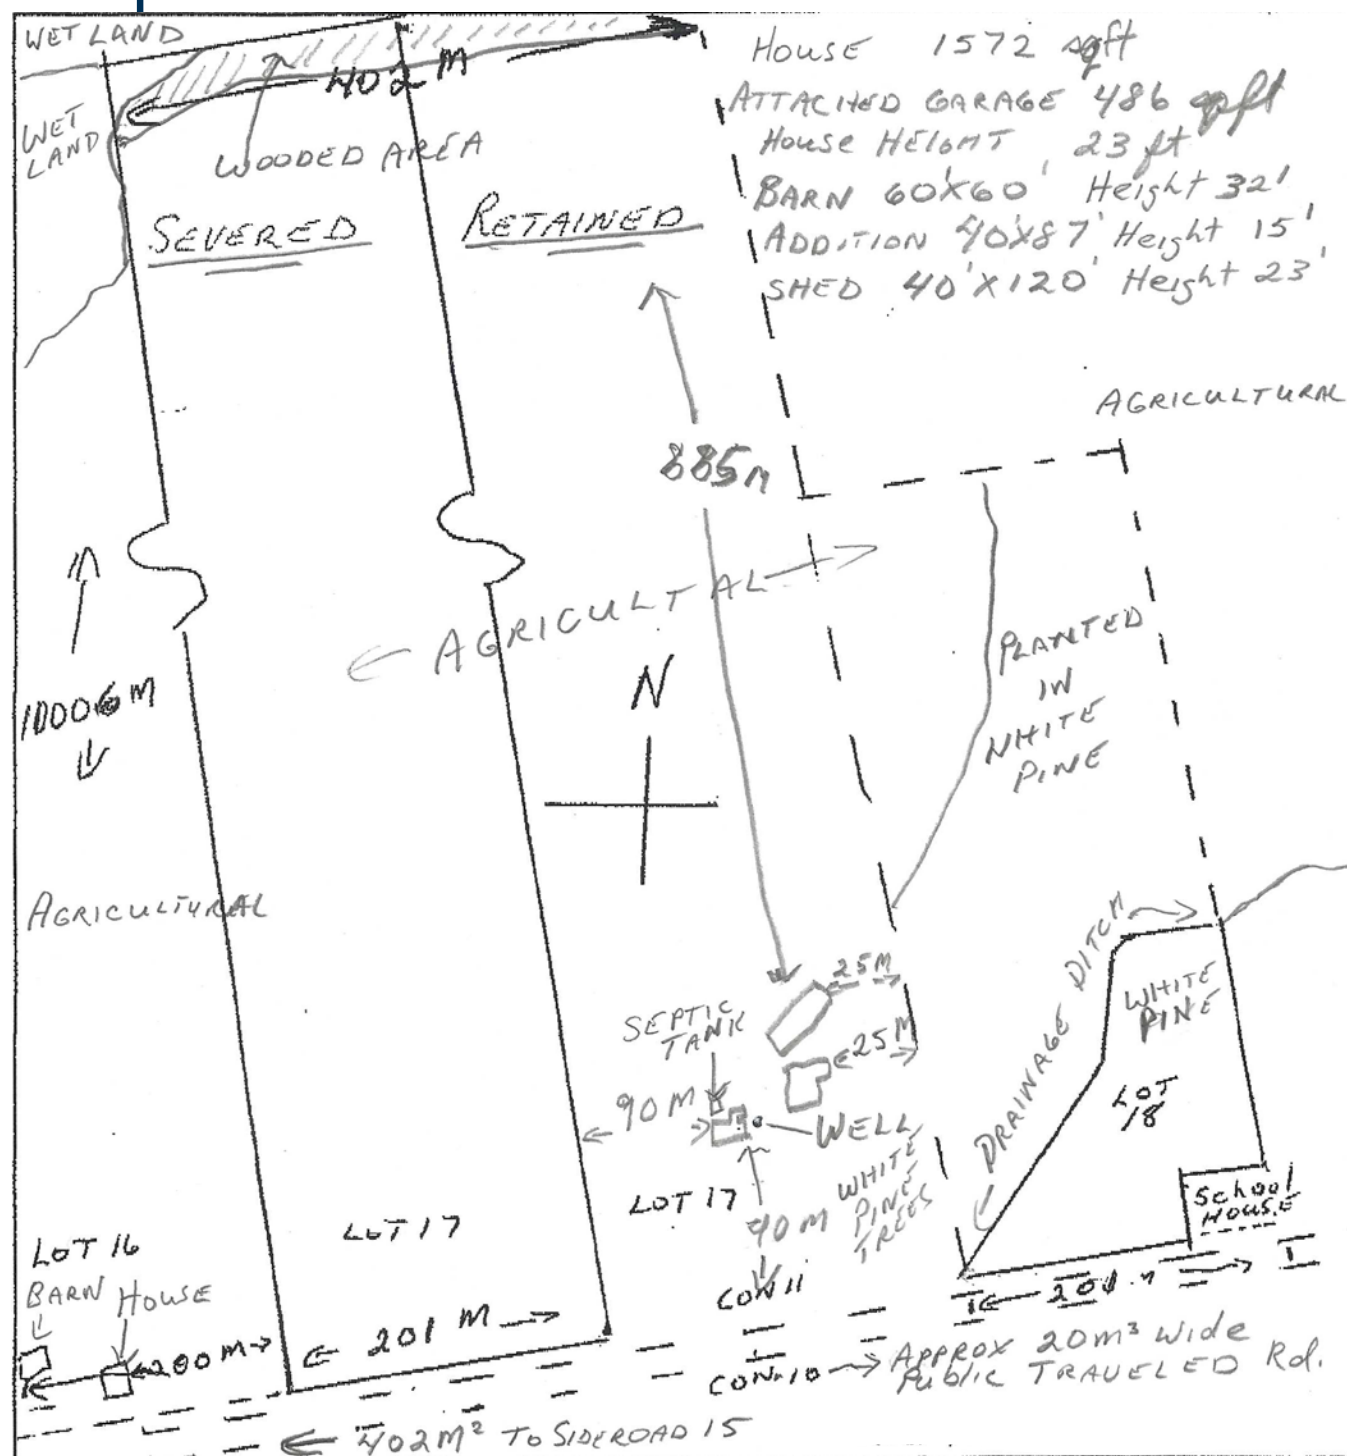 WETLAND
402 M
WET
LAND
WOODED AREA
SEVERED
RETAINED
HOUSE 1572 sqft
ATTACHED GARAGE 486 sqft
HOUSE HEIGHT 23 ft
BARN 60'X60' Height 32'
ADDITION 40'X87' Height 15'
SHED 40'X120' Height 23'
AGRICULTURAL
885m
AGRICULTAL
N
1006 M
PLANTED
IN
WHITE
PINE
AGRICULTURAL
DRAINAGE DITCH
WHITE
PINE
LOT
18
25M
25M
SEPTIC
TANK
90 M
WELL
WHITE
PINE
TREES
LOT 17
90 M
School
HOUSE
LOT 17
LOT 16
BARN HOUSE
200M
201 M
CON 11
201 m
CON 10
APPROX 20m³ Wide
Public TRAVELED Rd.
402M² TO SIDEROAD 15